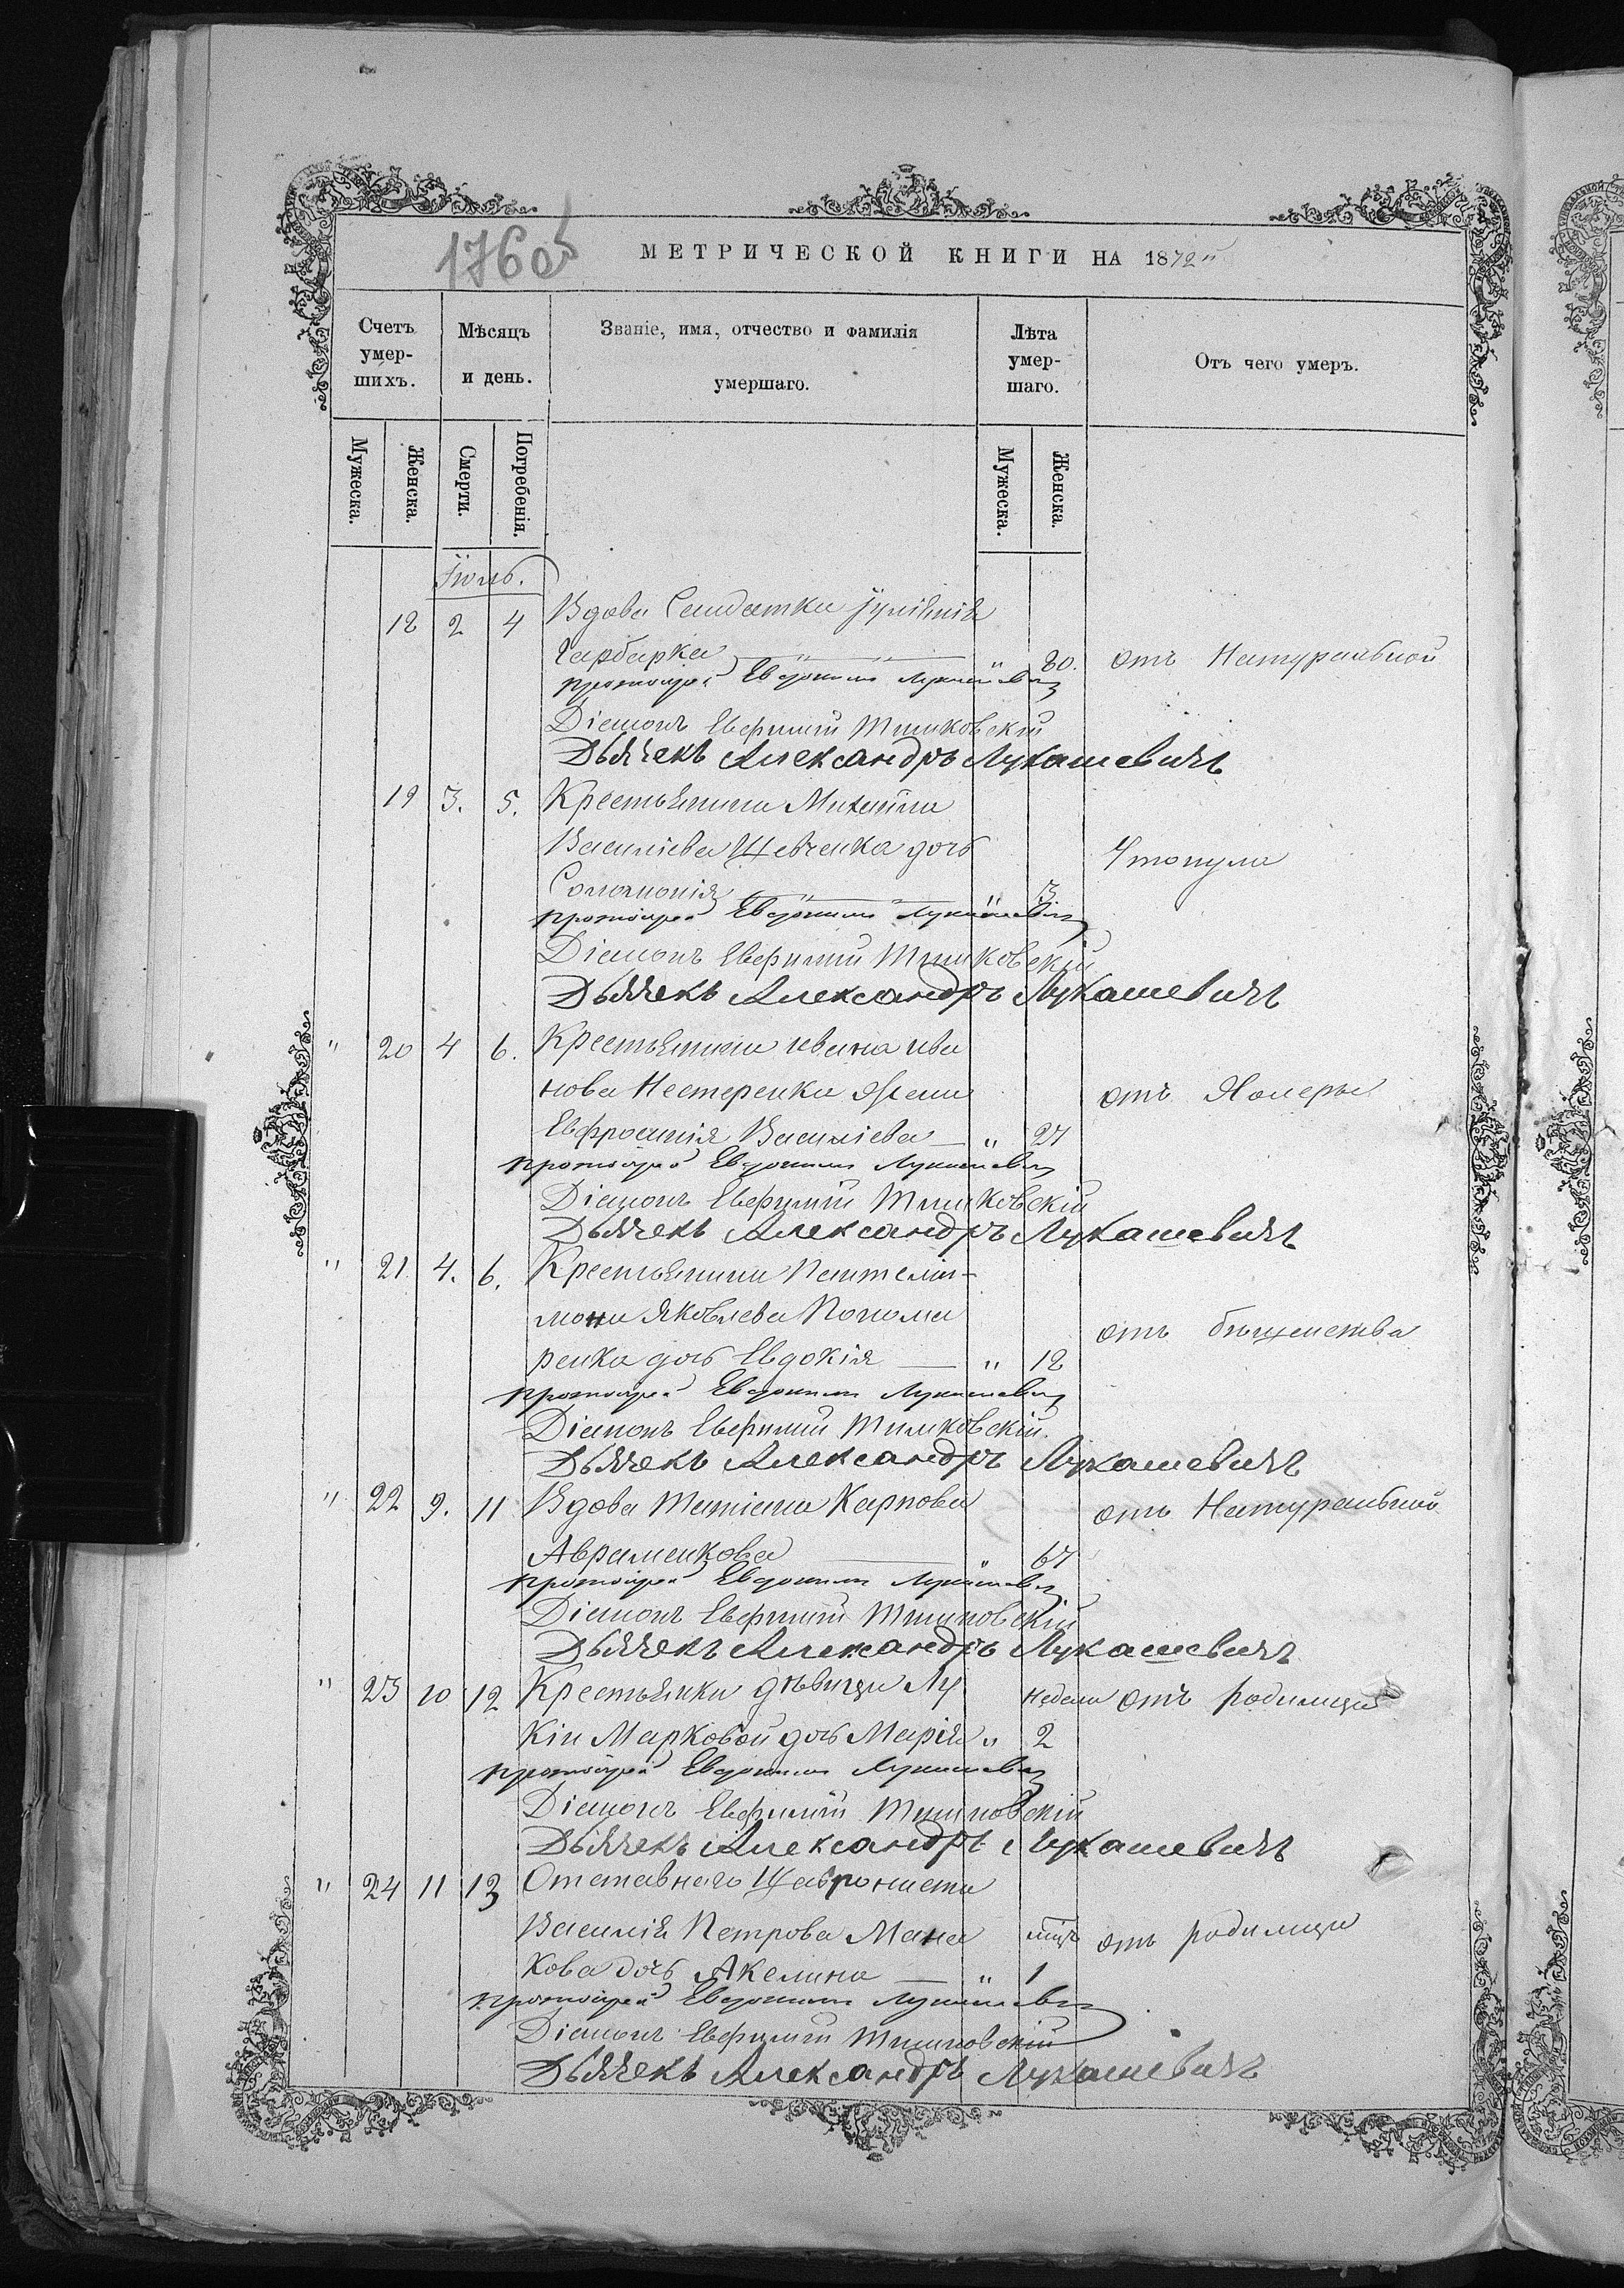 1760
МЕТРИЧЕСКОЙ КНИГИ НА 1872
Счетъ умер-шихъ.
Мѣсяцъ и день.
Званіе, имя, отчество и фамилія умершаго.
Лѣта умер-шаго.
Отъ чего умеръ.
Мужеска.
Женска.
Смерти.
Погребенія.
Мужеска.
Женска.
Іюль.
18 2 4 Вдова Салдатка Іулiянiя
Гарбарка " 80. отъ Натуральной
протоіерей Евдокимъ Лукашевичъ
Діаконъ Евфимій
Дьячекъ Александръ Лукашевичъ
19 3. 5. Крестьянина Михаила
Василіева Шевченка дочь Утопула
Соломонія " 3
протоіерей Евдокимъ Лукашевичъ
Діаконъ Евфимій
Дьячекъ Александръ Лукашевичъ
" 20 4 6. Крестьянина ивана ива
нова Нестеренка жена отъ Холеры
Евфросинія Василіева — " 27
протоіерей Евдокимъ Лукашевичъ
Діаконъ Евфимій
Дьячекъ Александръ Лукашевичъ
" 21. 4. 6. Крестьянина Пантелій-
мона Яковлева Понома
ренка дочь Евдокія — " 12 отъ бѣшенства
протоіерей Евдокимъ Лукашевичъ
Діаконъ Евфимій
Дьячекъ Александръ Лукашевичъ
" 22 9. 11 Вдова Татіана Карпова отъ Натуральной
Авраменкова — " 67
протоіерей Евдокимъ Лукашевичъ
Діаконъ Евфимій
Дьячекъ Александръ Лукашевичъ
" 23 10 12 Крестьянки дѣвицы Лу недели отъ родимца
кіи Марковой дочь Марія " 2
протоіерей Евдокимъ Лукашевичъ
Діаконъ Евфимій
Дьячекъ Александръ Лукашевичъ
" 24 11 13 Отставнаго
Василія Петрова Мана мѣц. отъ родимца
кова дочь Акелина — " 1
протоіерей Евдокимъ Лукашевичъ
Діаконъ Евфимій
Дьячекъ Александръ Лукашевичъ